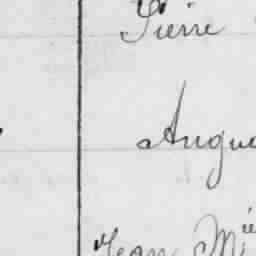 Pierre
Augu
Jean M ie